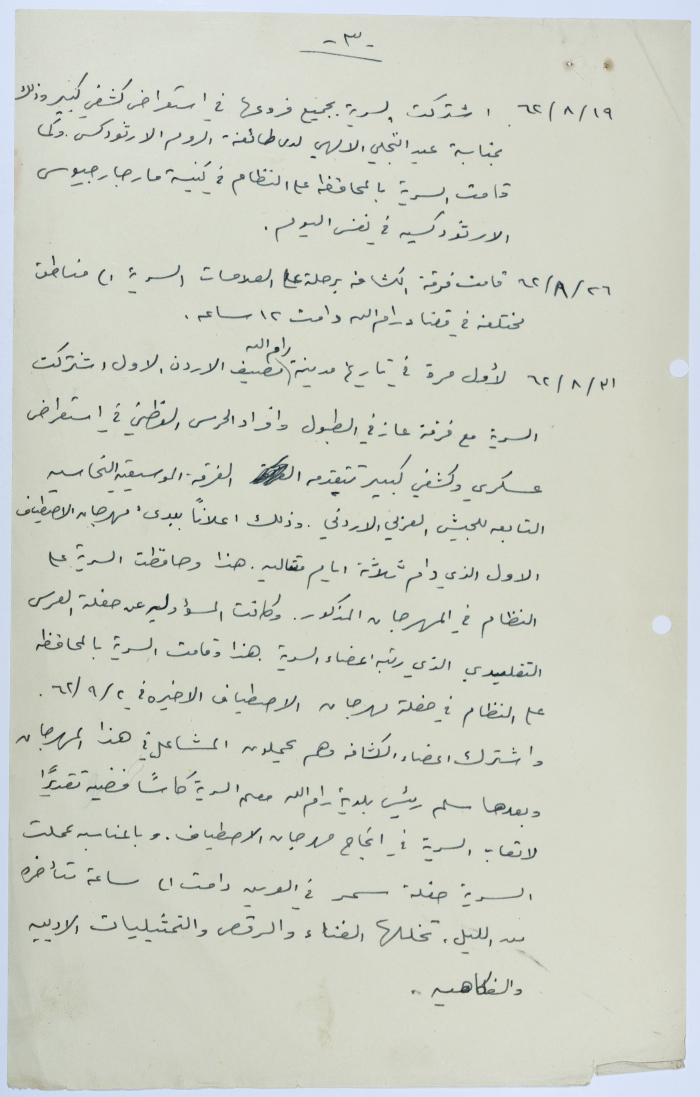 -٣-
٦٢/٨/١٩ اشتركت السرية بجميع فروعها في استعراض كشفي كبير وذلك
بمناسبة عيد التجلي الالهي لدى طائفة الروم الارثودكس. وكما
قامت السرية بالمحافظة على النظام في كنيسة مار جارجيوس
الارثودكسيه في نفس اليوم.
٦٢/٨/٢٦ قامت فرقة الكشافه برحلة على العلامات السرية الى مناطق
مختلفه في قضاء رام الله دامت ١٢ ساعه.
رام الله
٦٢/٨/٣١ لأول مرة في تاريخ مدينة مصيف الاردن الاول اشتركت
السرية مع فرقة عازفي الطبول وافراد الحرس الوطني في استعراض
عسكري وكشفي كبير تتقدمه الفرقة الموسيقيه النحاسيه
التابعه للجيش العربي الاردني. وذلك اعلاناً ببدئ مهرجان الاصطياف
الاول الذي دام ثلاثة ايام متتاليه. هذا وحافظت السرية على
النظام في المهرجان المذكور. وكانت المسؤوليه عن حفلة العرس
التقليدي الذي رتبه اعضاء السرية. هذا وقامت السرية بالمحافظه
على النظام في حفلة مهرجان الاصطياف الاخيره في ٦٢/٩/٢.
واشترك اعضاء الكشافه وهم يحملون المشاعل في هذا المهرجان
وبعدها سلم رئيس بلدية رام الله معلم السرية كاساً فضيه تقديرًا
لاتعاب السرية في انجاح مهرجان الاصطياف. وبالمناسبه عملت
السرية حفلة سمر في العرين دامت الى ساعة متأخره
من الليل. تخللها الغناء والرقص والتمثيليات الادبيه
والفكاهيه.